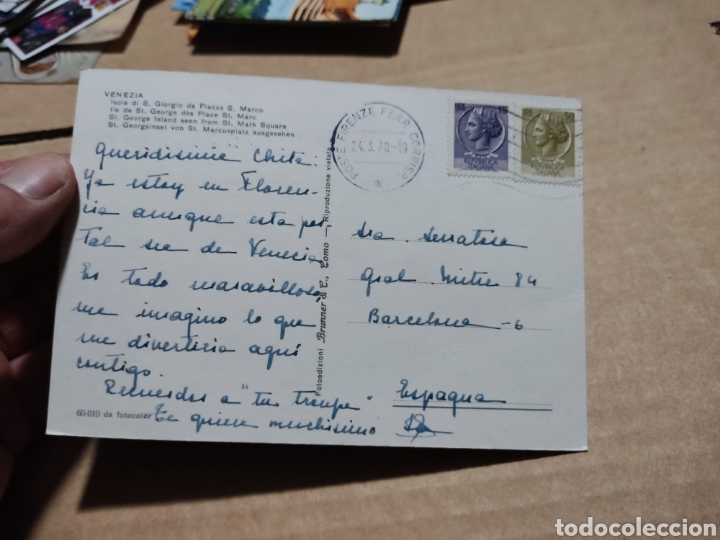 VENEZIA
Isola di S. Giorgio da Piazza S. Marco
Ile de St. George dès Place St. Marc
St. George Island seen from St. Mark Square
St. Georgeinsel von St. Marcusplatz ausgesehen
Queridisima Chita:
Ya estoy en Floren-
cia aunque esta pos-
tal sea de Venecia
Es todo maravilloso
me imagino lo que
me divertiria aquí
contigo.
Recuerdos a "tu troupe"
Te quiere muchisimo
60-010 da fotocolor
Fotoedizioni Brunner & C., Como - Riproduzione vietata
POSTE FIRENZE FERR. CORRISP.
24.3.70-19
50
ITALIANA
Sra. Serratosa
Gral Mitre 84
Barcelona-6
Espagna
todocoleccion
todocoleccion.net